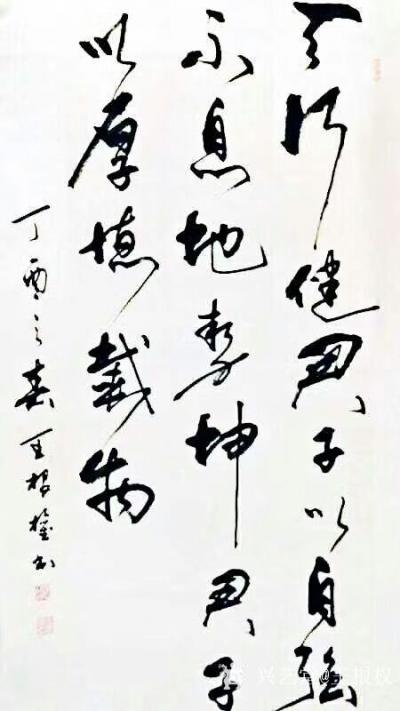 天行健君子以自强
不息地势坤君子
以厚德载物
丁酉之春王根权书
兴艺堂@王根权